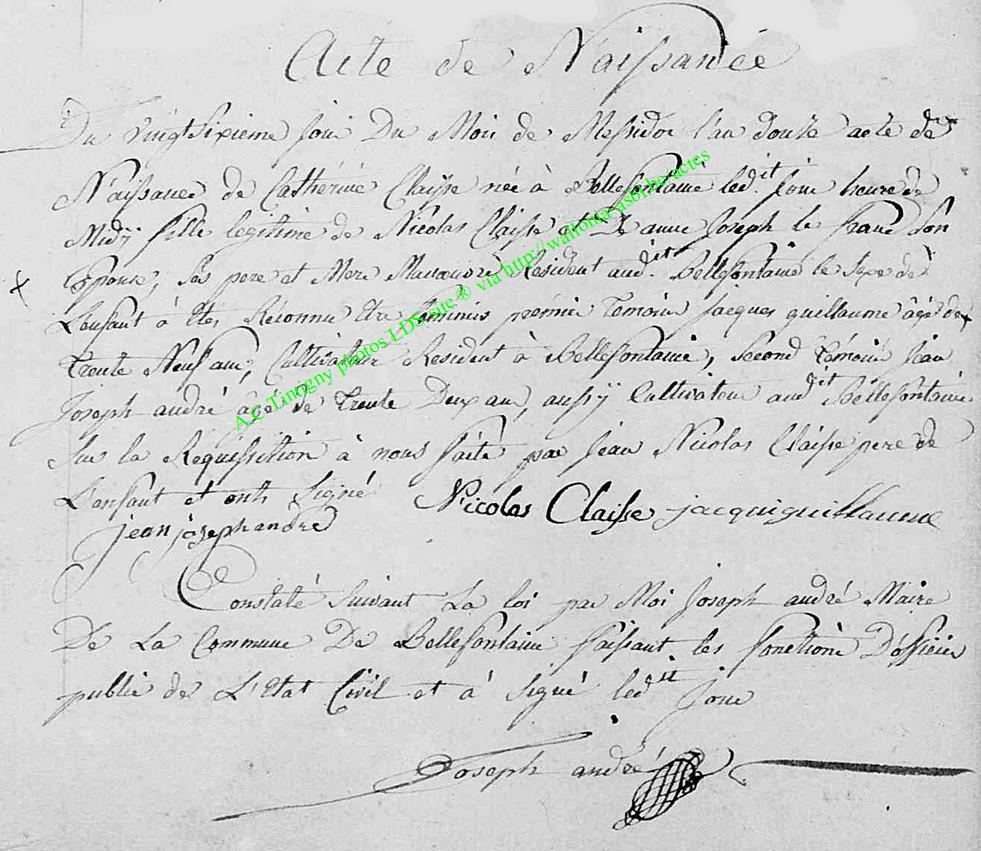 Acte de Naissance
Du vingt sixieme jour Du Mois de Messidor l'an douze acte de
Naissance de Catherine Claisse née à Bellefontaine ledit jour heure de
Midÿ fille legitime de Nicolas Claisse et De anne Joseph le franc Son
Epouse, ses pere et Mere Resident audit Bellefontaine le sexe de
L'enfant à etes Reconnu être feminin premier temoin Jacques guillaume âgé de
trente Neuf ans, Cultivateur Resident à Bellefontaine, second temoin Jean
Joseph andré agé de trente Deux ans, aussÿ Cultivateur audit Bellefontaine
Sur la Requissition à nous faite par Jean Nicolas Claisse pere de
L'enfant et onts signé Nicolas Claisse jacquiguillaume
jean joseph andré
Constaté suivant La loi par Moi Joseph andré Maire
De La Commune De Bellefontaine faissant les fonctions D'officier
public de L'etat Civil et à signé ledit jour
Joseph andré
A.C. Tintigny photos LDS site ® via http://wallonia-asbl.be/actes